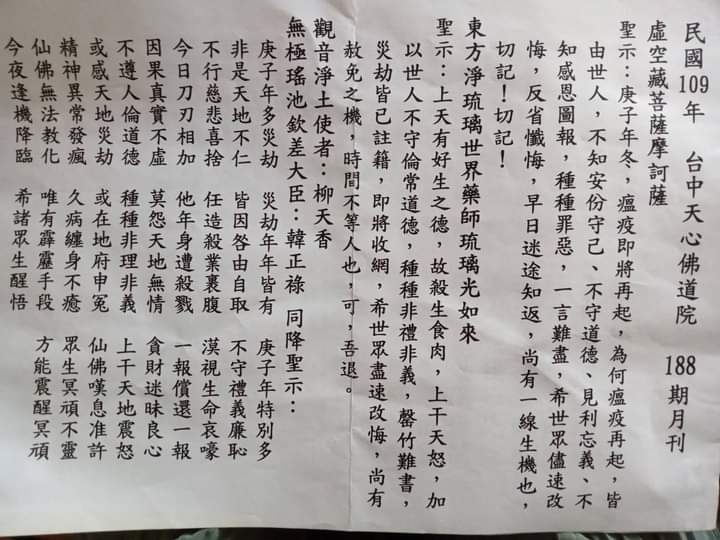 民國109年 台中天心佛道院 188期月刊
虛空藏菩薩摩訶薩
聖示：庚子年冬，瘟疫即將再起，為何瘟疫再起，皆
由世人，不知安份守己、不守道德、見利忘義、不
知感恩圖報，種種罪惡，一言難盡，希世眾儘速改
悔，反省懺悔，早日迷途知返，尚有一線生機也，
切記！切記！
東方淨琉璃世界藥師琉璃光如來
聖示：上天有好生之德，故殺生食肉，上干天怒，加
以世人不守倫常道德，種種非禮非義，罄竹難書，
災劫皆已註籍，即將收網，希世眾盡速改悔，尚有
赦免之機，時間不等人也，可，吾退。
觀音淨土使者：柳天香
無極瑤池欽差大臣：韓正祿 同降聖示：
庚子年多災劫 災劫年年皆有 庚子年特別多
非是天地不仁 皆因咎由自取 不守禮義廉恥
不行慈悲喜捨 任造殺業裹腹 漠視生命哀嚎
今日刀刃相加 他年身遭殺戮 一報償還一報
因果真實不虛 莫怨天地無情 貪財迷昧良心
不遵人倫道德 種種非理非義 上干天地震怒
或感天地災劫 或在地府申冤 仙佛嘆息准許
精神異常發瘋 久病纏身不癒 眾生冥頑不靈
仙佛無法教化 唯有霹靂手段 方能震醒冥頑
今夜逢機降臨 希諸眾生醒悟